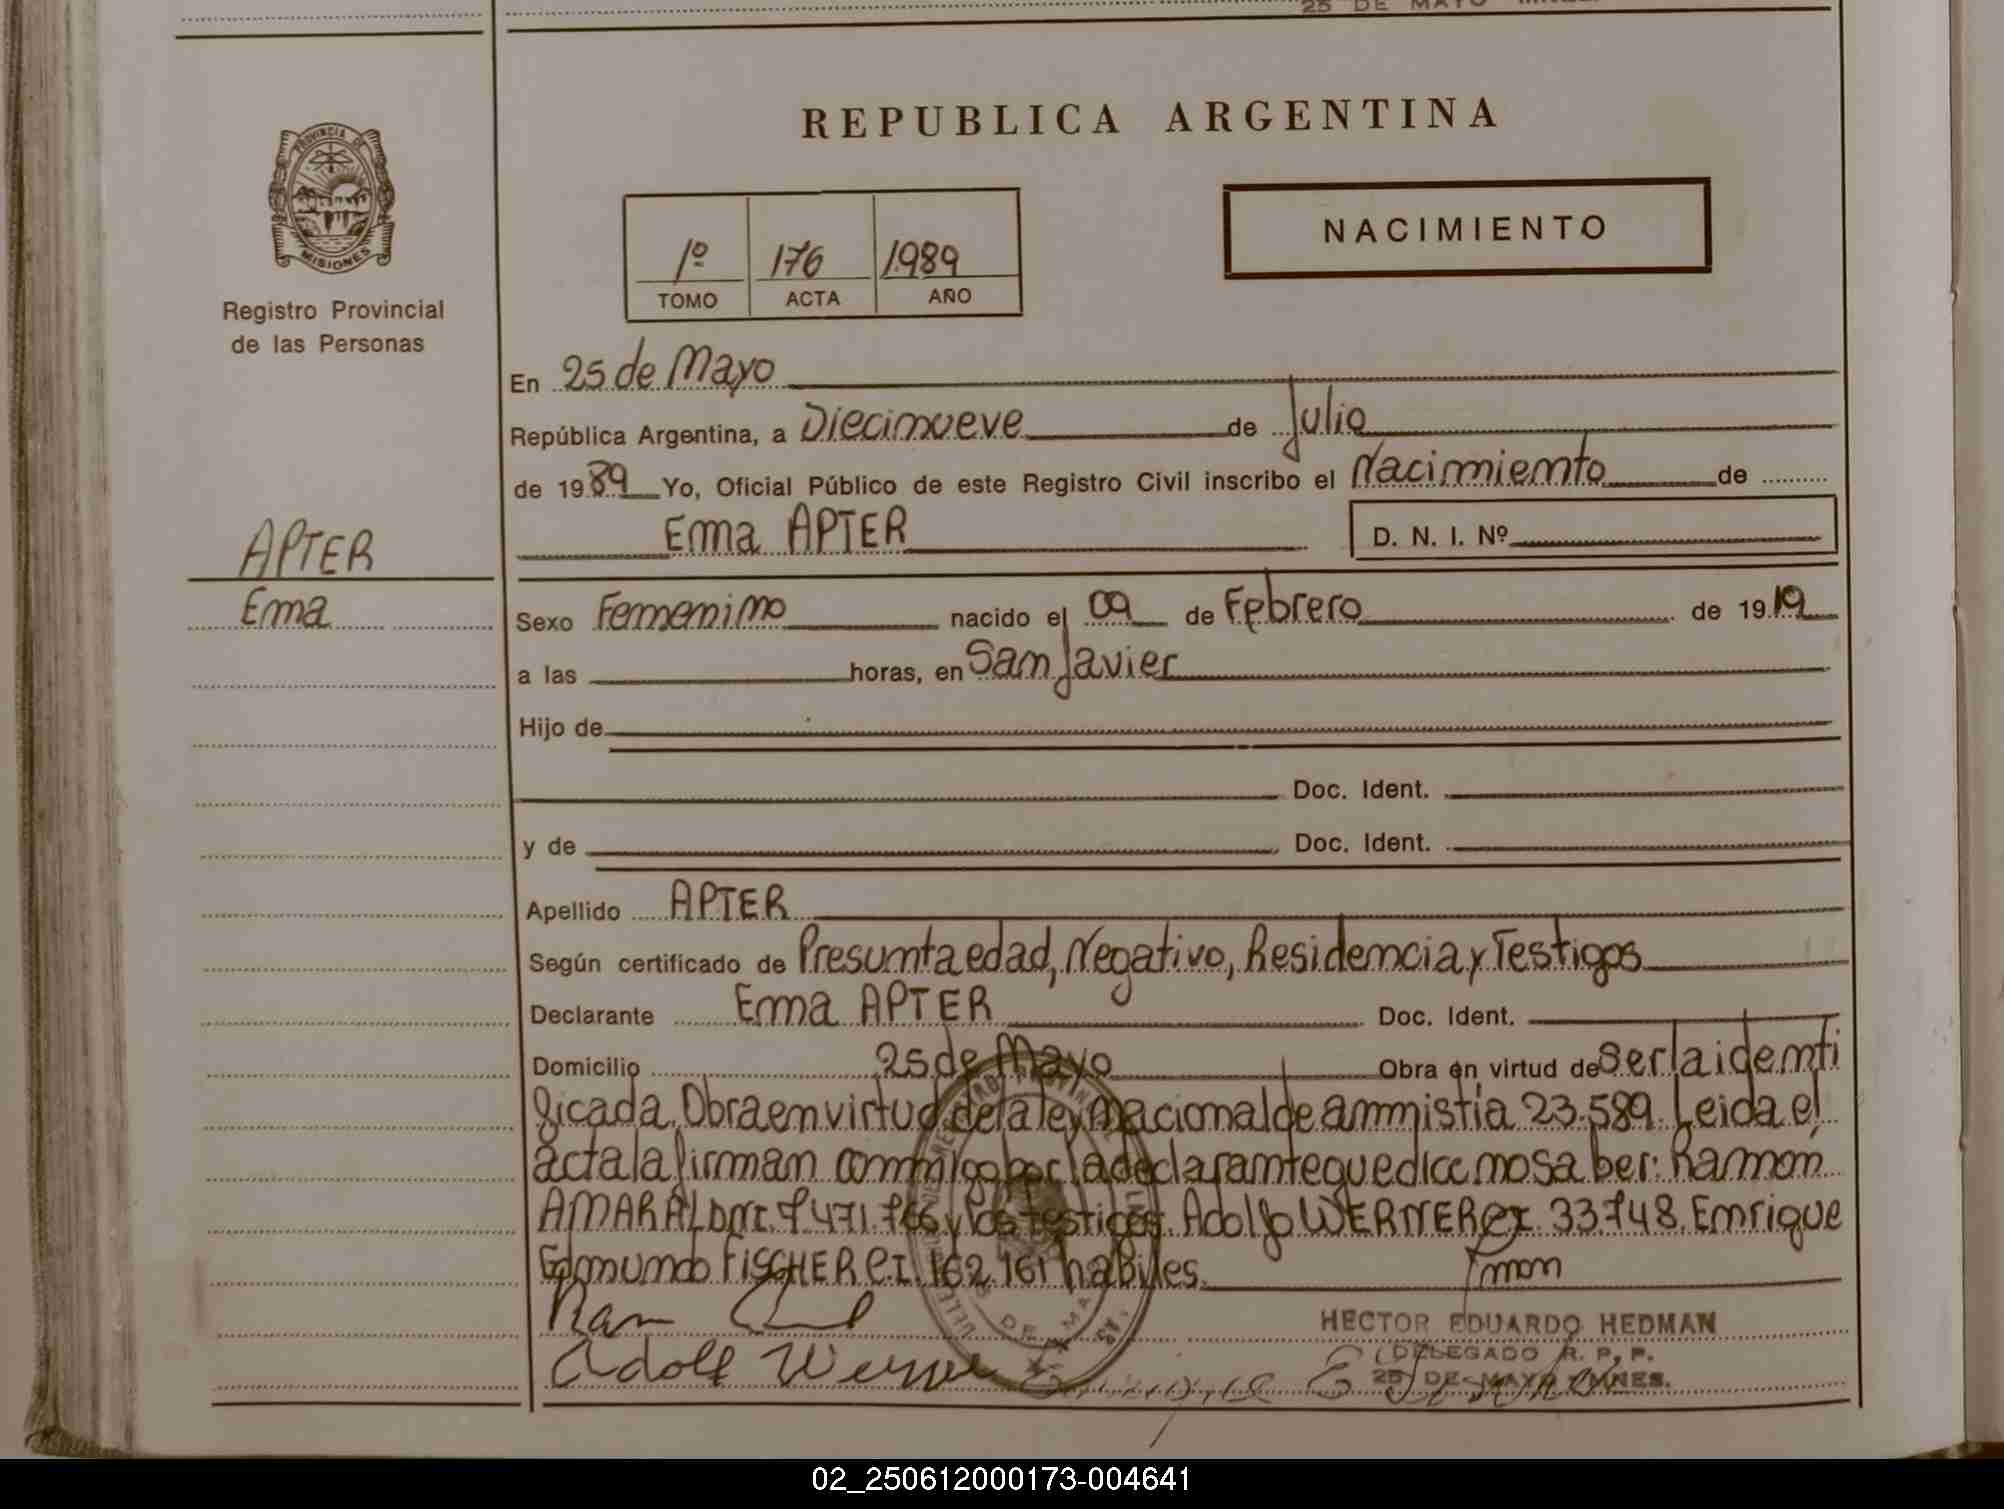 25 DE MAYO
REPUBLICA ARGENTINA
PROVINCIA DE
MISIONES
Registro Provincial
de las Personas
1º 176 1989
TOMO ACTA AÑO
NACIMIENTO
En 25 de Mayo
República Argentina, a Diecinueve de Julio
de 1989 Yo, Oficial Público de este Registro Civil inscribo el Nacimiento de
Ema APTER D. N. I. Nº
APTER
Ema
Sexo Femenino nacido el 09 de Febrero de 1919
a las horas, en San Javier
Hijo de
Doc. Ident.
y de Doc. Ident.
Apellido APTER
Según certificado de Presunta edad, Negativo, Residencia y Testigos
Declarante Ema APTER Doc. Ident.
Domicilio 25 de Mayo Obra en virtud de Ser la identi
ficada. Obra en virtud de la ley nacional de amnistia 23.589. Leida el
acta la firman conmigo por la declarante que dice no saber: Ramon
AMARAL DNI. 7471.766 y los testigos. Adolfo WERNER C.I. 33748. Enrique
Edmundo FISCHER C.I. 162.161 habiles.
HECTOR EDUARDO HEDMAN
DELEGADO R. P. P.
25 DE MAYO MNES.
Adolf Werner
02_250612000173-004641